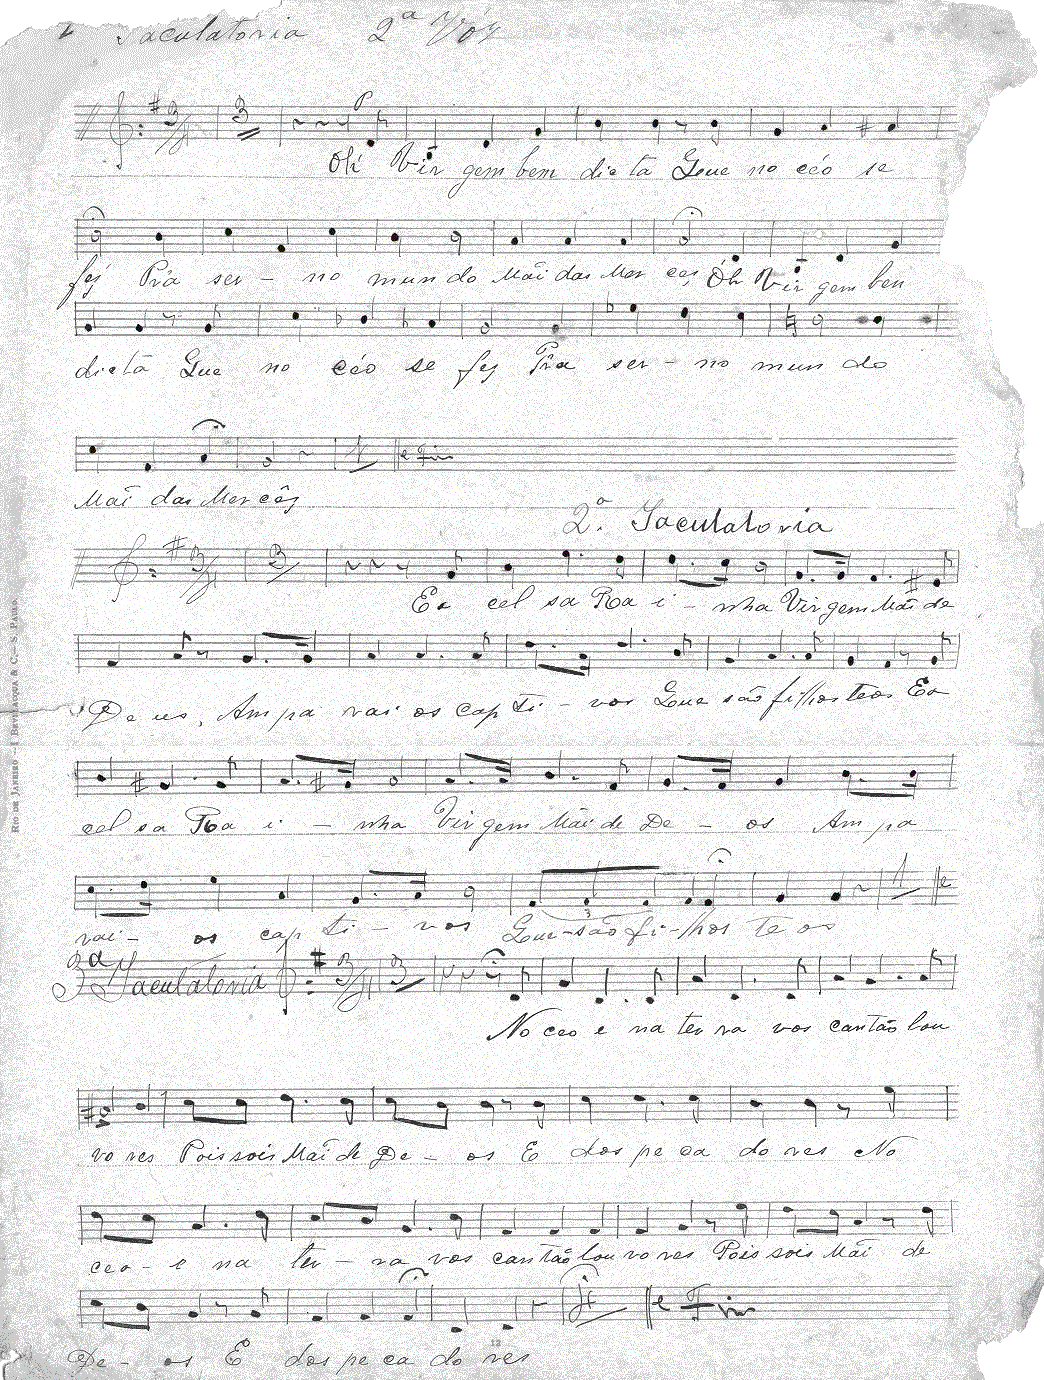 Jaculatoria 2ª Vóz
Oh! Vir gem bem dicta Que no céo se
fez Pra ser - no mun do Mãi das Mer cês Oh Vir gem ben
dicta Que no céo se fez Pra ser - no mun do
e Fim
Mãi das Mer cês
2ª. Jaculatoria
Ex cel sa Ra i - nha Vir gem Mãi de
De us, Am pa rai os cap ti - vos Que são filhos teos Ex
cel sa Ra i - nha Vir gem Mãi de De - os Am pa
rai - os cap ti - vos Que - são fi - lhos te os
3ª Jaculatoria
No ceo e na ter ra vos cantão lou
vo res Pois sois Mãi de De - os E dos pe ca do res No
ceo - e na ter - ra vos can tão lou vo res Pois sois Mãi de
e Fim
De - os E dos pe ca do res
12
RIO DE JANEIRO - I BEVILACQUA & C. - S. PAULO